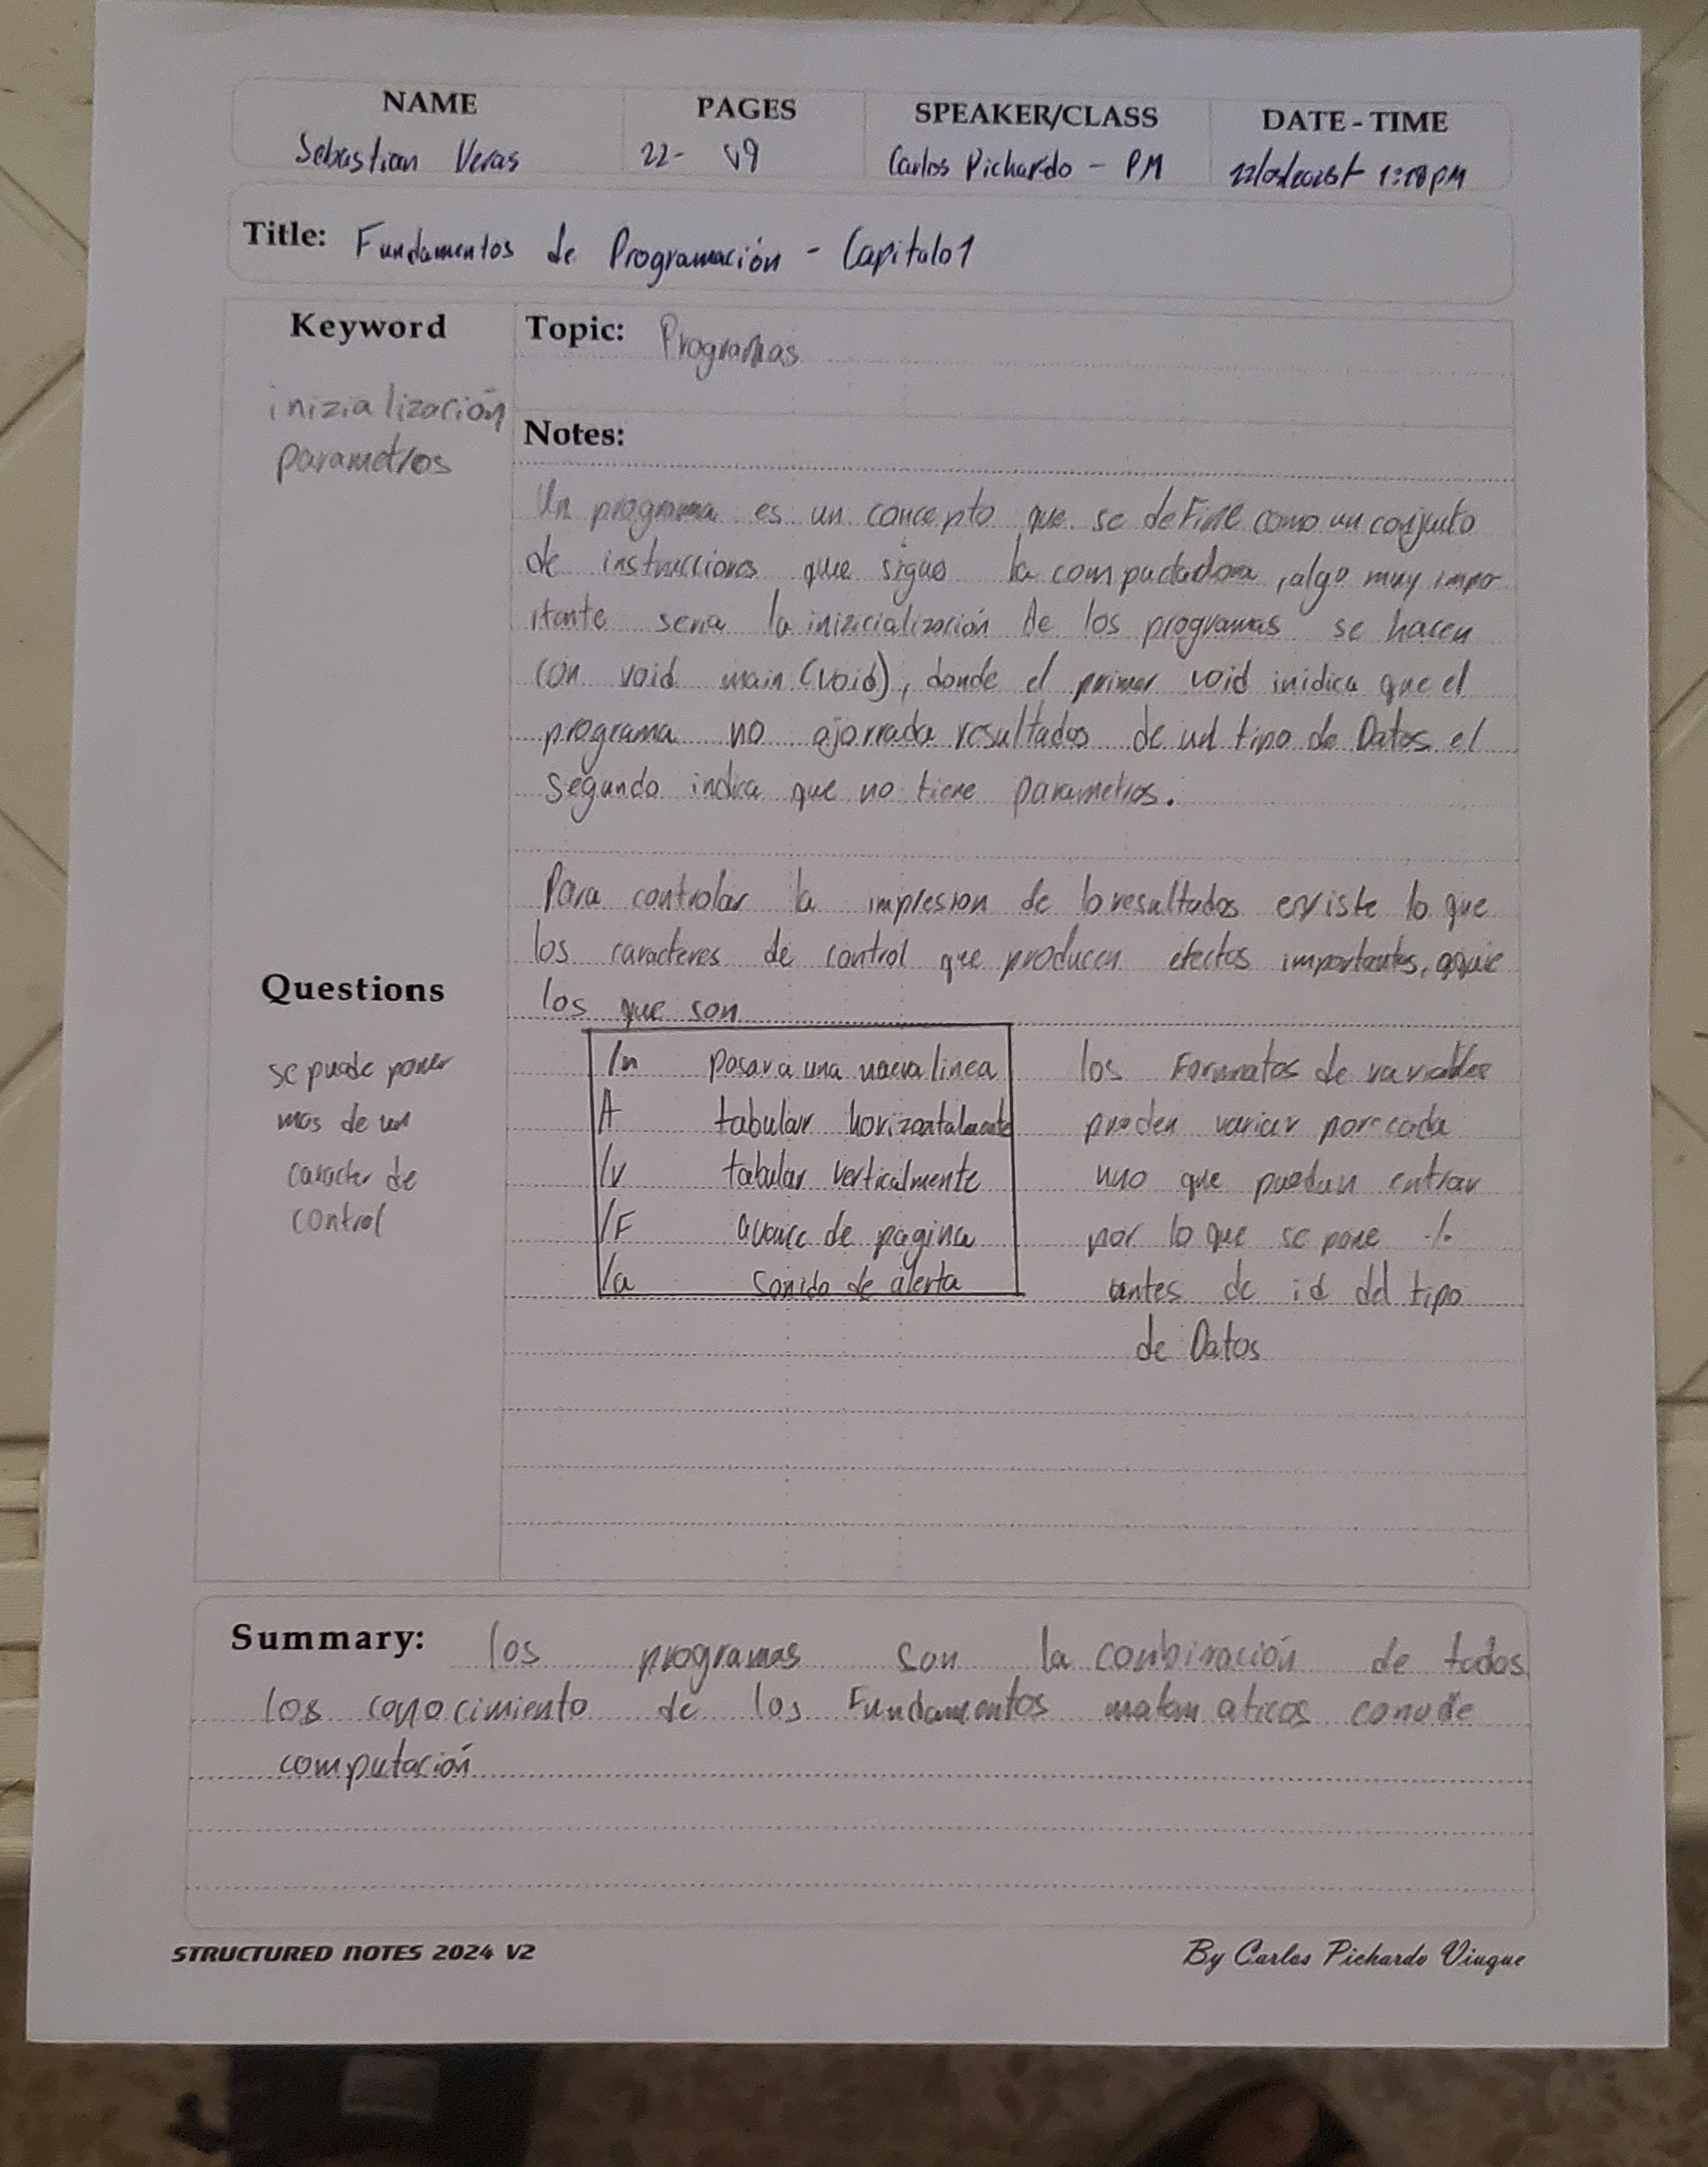 NAME PAGES SPEAKER/CLASS DATE-TIME
Sebastian Veras 22- 49 Carlos Pichardo - PM 1:18PM
Title: Fundamentos de Programación - Capitulo 1
Keyword
inizialización
parametros
Topic: Programas
Notes:
Un programa es un concepto que se define como un conjunto
de instrucciones que sigue la computadora, algo muy impor
tante seria la inizicialización de los programas se hacen
con void main (void), donde el primer void inidica que el
programa no resultados de un tipo de Datos el
segundo indica que no tiene parametros.
Para controlar la impresion de lo resultados existe lo que
los caracteres de control que producen efectos importantes,
los que son
Questions
se puede poner
mas de un
caracter de
control
/n pasar a una nueva linea
/t tabular horizontalmente
/v tabular verticalmente
/F avance de pagina
/a sonido de alerta
los Formatos de variables
pueden variar por cada
uno que puedan entrar
por lo que se pone %
antes de id del tipo
de Datos
Summary: los programas son la combinación de todos
los conocimiento de los Fundamentos matematicos
computación
STRUCTURED NOTES 2024 V2
By Carlos Pichardo Viuque